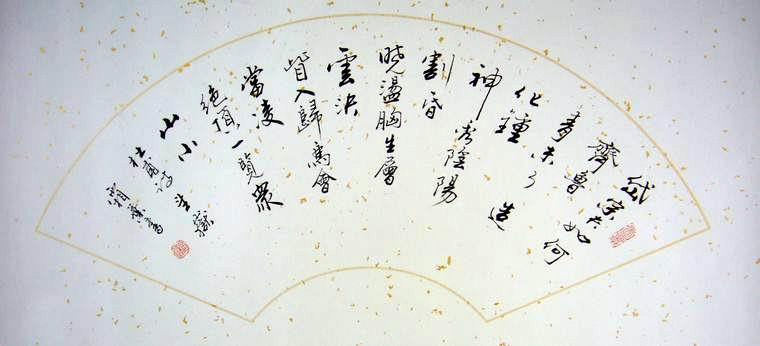 岱宗夫如何
齊魯
青未了造
化鍾
神秀陰陽
割昏
曉盪胸生層
雲決
眥入歸鳥會
當凌
絕頂一覽衆
山小
杜甫詩望嶽